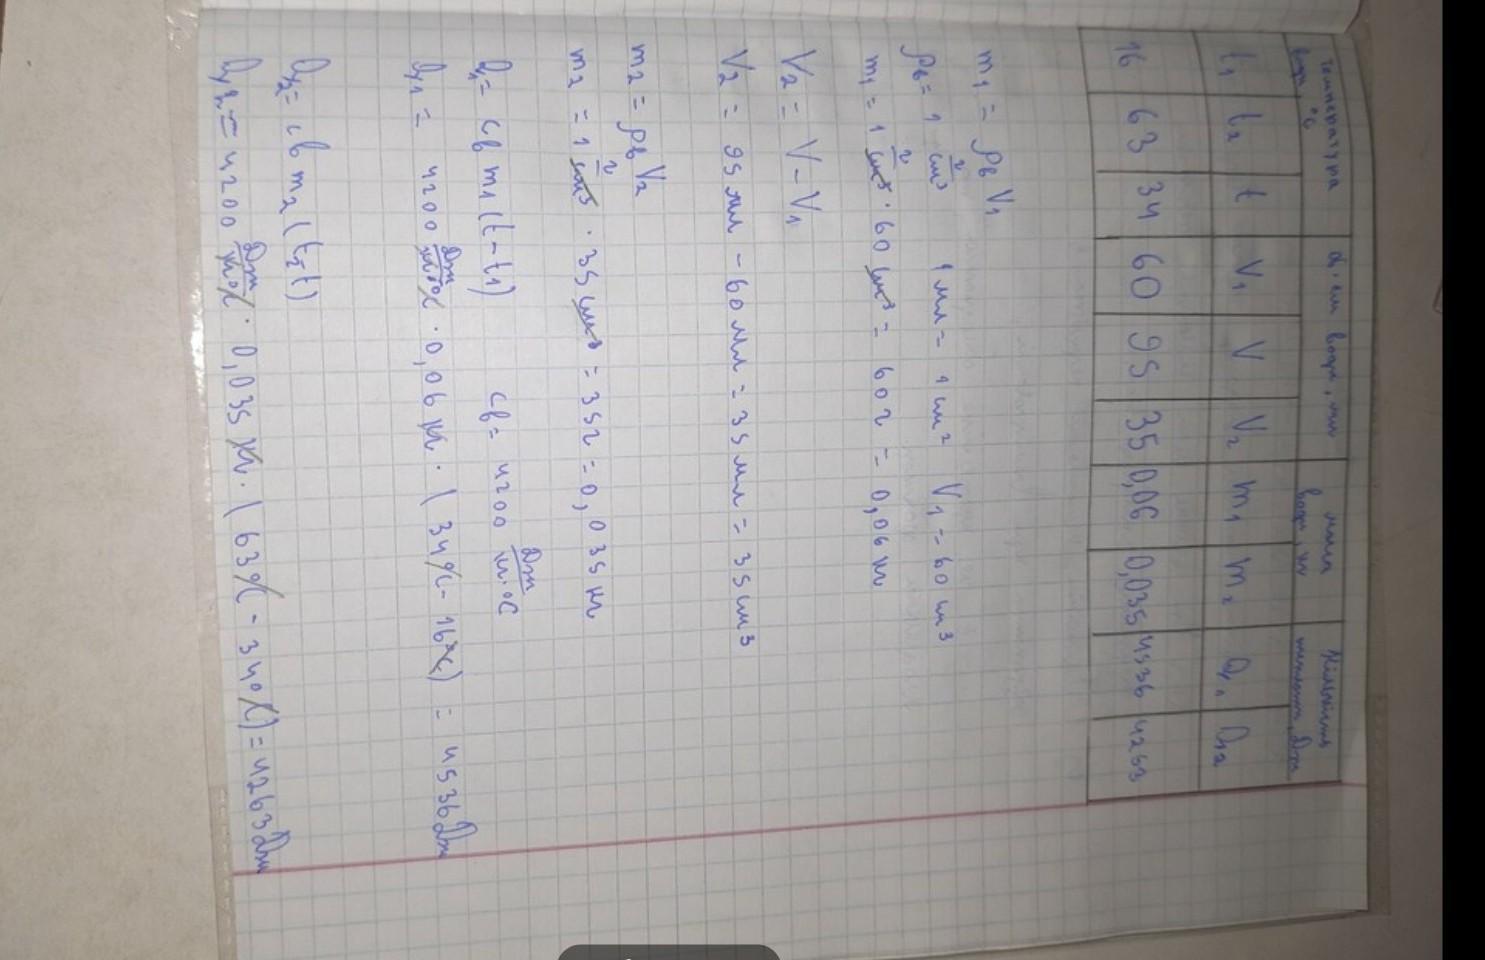 Температура води, °C
Об'єм води, мл
Маса води, кг
Кількість теплоти, Дж
t₁ t₂ t V₁ V V₂ m₁ m₂ Q₁ Q₂
16 63 34 60 95 35 0,06 0,035 4536 4263
m₁ = ρв V₁
ρв = 1 г/см³ 1 мл = 1 см³ V₁ = 60 см³
m₁ = 1 г/см³ · 60 см³ = 60 г = 0,06 кг
V₂ = V - V₁
V₂ = 95 мл - 60 мл = 35 мл = 35 см³
m₂ = ρв V₂
m₂ = 1 г/см³ · 35 см³ = 35 г = 0,035 кг
Q₁ = cв m₁ (t - t₁) cв = 4200 Дж/кг·°C
Q₁ = 4200 Дж/кг·°C · 0,06 кг · (34°C - 16°C) = 4536 Дж
Q₂ = cв m₂ (t₂ - t)
Q₂ = 4200 Дж/кг·°C · 0,035 кг · (63°C - 34°C) = 4263 Дж